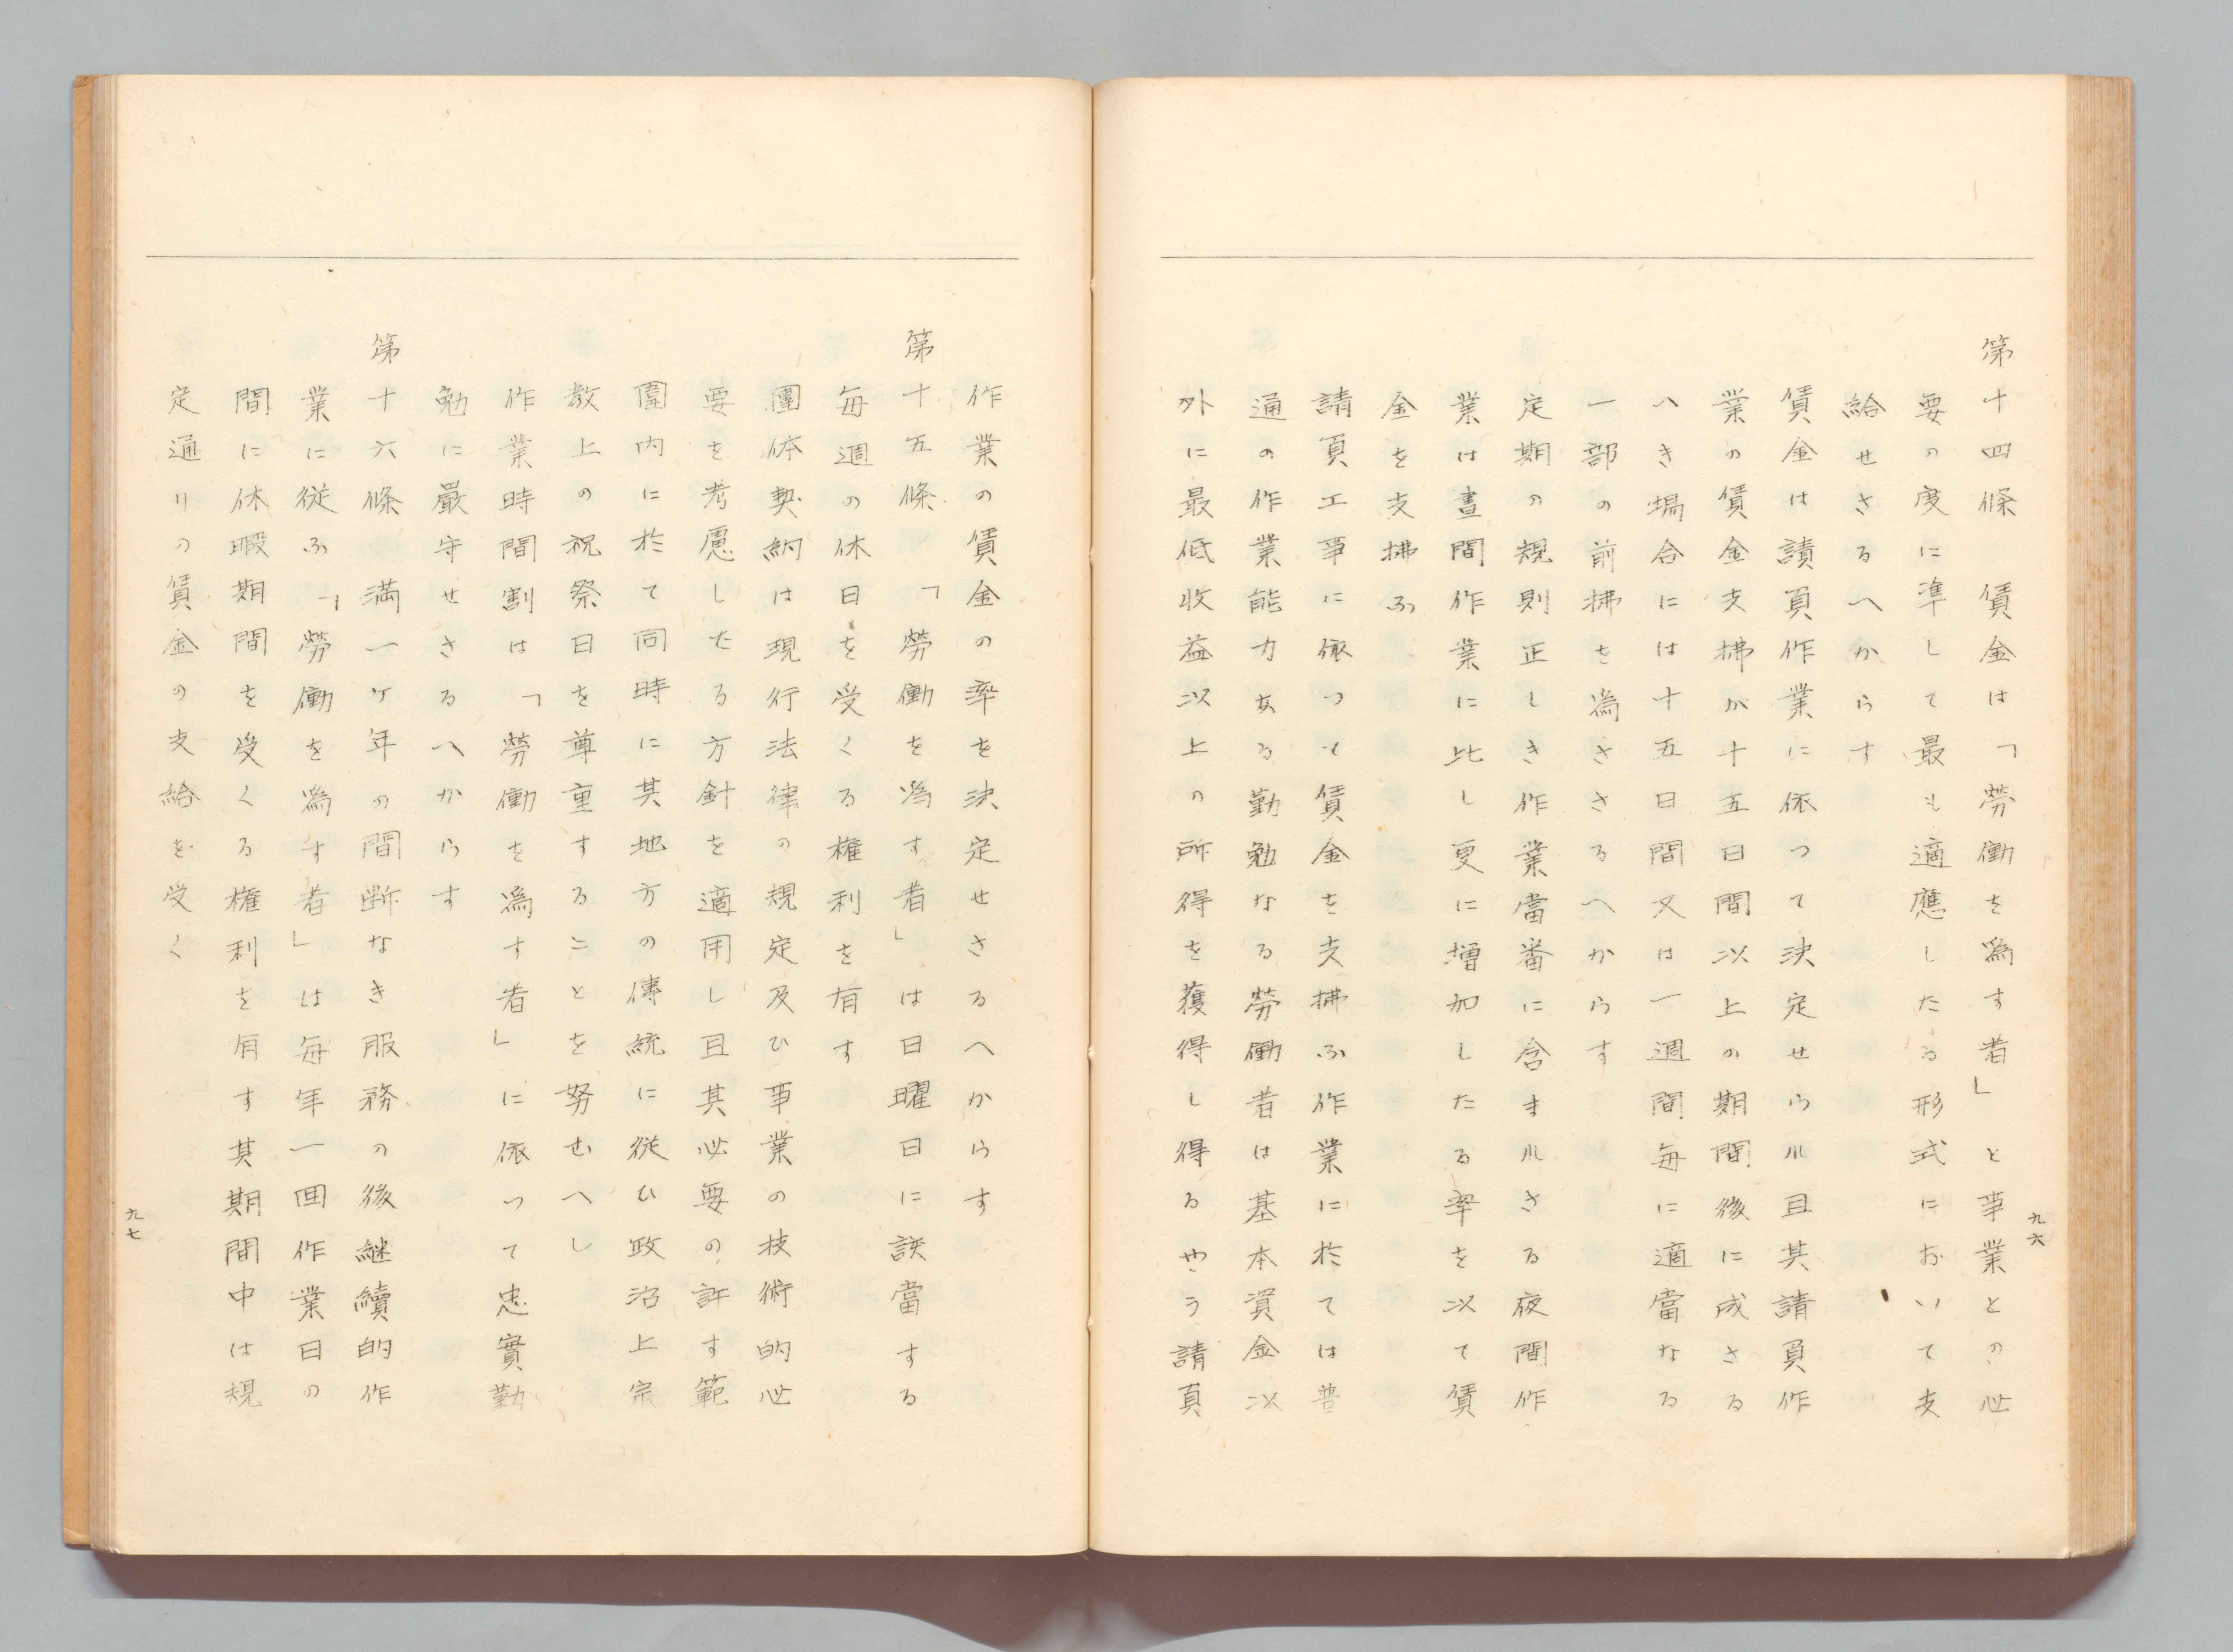 九六
第十四條　賃金は「勞働を爲す者」と事業との必
要の度に準して最も適應したる形式において支
給せさるへからす
賃金は請負作業に依つて決定せられ且其請負作
業の賃金支拂が十五日間以上の期間後に成さる
へき場合には十五日間又は一週間毎に適當なる
一部の前拂を爲さざるへからす
定期の規則正しき作業當番に含まれさる夜間作
業は晝間作業に比し更に增加したる率を以て賃
金を支拂ふ
請負工事に依つて賃金を支拂ふ作業に於ては普
通の作業能力ある勤勉なる勞働者は基本資金以
外に最低收益以上の所得を獲得し得るやう請負
作業の賃金の率を決定せさるへからす
第十五條　「勞働を爲す者」は日曜日に該當する
每週の休日を受くる權利を有す
團体契約は現行法律の規定及ひ事業の技術的必
要を考慮したる方針を適用し且其必要の許す範
圍内に於て同時に其地方の傳統に從ひ政治上宗
教上の祝祭日を尊重することを努むへし
作業時間割は「勞働を爲す者」に依つて忠實勤
勉に嚴守せさるへからす
第十六條　満一ケ年の間斷なき服務の後継續的作
業に從ふ「勞働を爲す者」は每年一囬作業日の
間に休暇期間を受くる權利を有す其期間中は規
定通りの賃金の支給を受く
九七